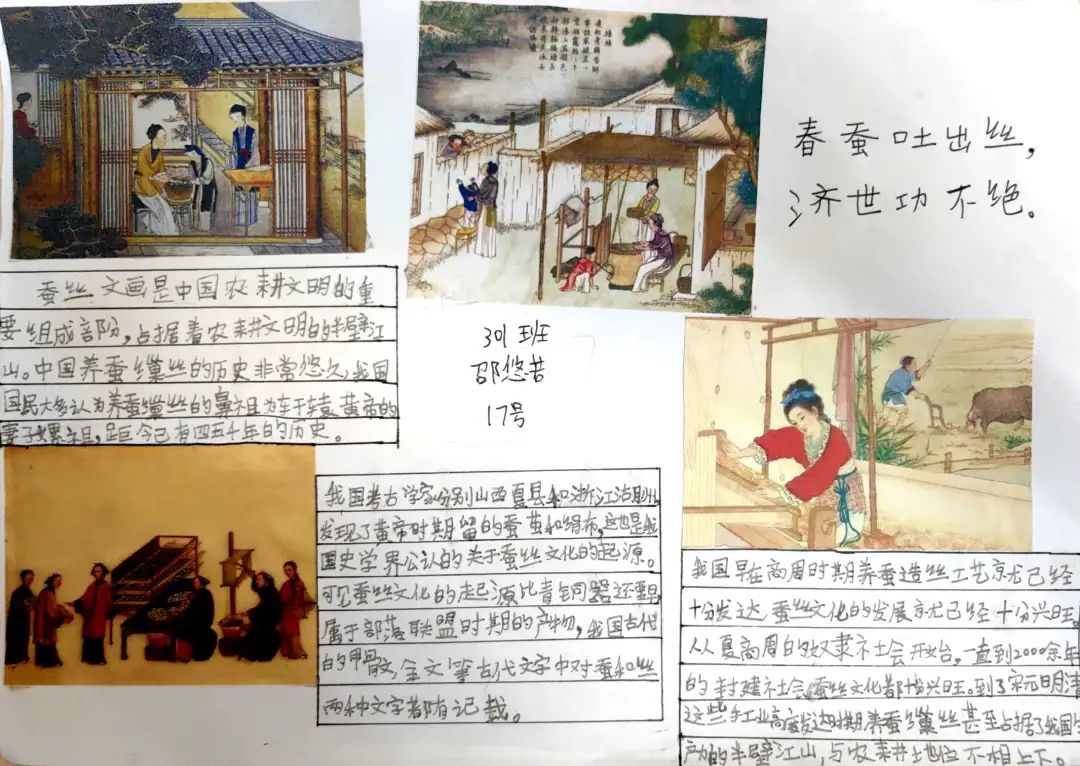 春蚕吐出丝，
济世功不绝。
蚕丝文画是中国农耕文明的重
要组成部防，占据着农耕文明的半壁江
山。中国养蚕缫丝的历史非常悠久，我国
国民大多认为养蚕缫丝的鼻祖为轩辕黄帝的
妻子嫘祖，距今已有四五千年的历史。
301班
邵悠若
17号
我国考古学家分别山西夏县和浙江沾
发现了黄帝时期留的蚕茧和绢布，这也是我
国史学界公认的关于蚕丝文化的起源。
可见蚕丝文化的起源比青铜器还要早
属于部落联盟时期的产物，我国古代
的甲骨文，金文等古代文字中对蚕和丝
两种文字都有记载。
我国早在商周时期养蚕造丝工艺就已经
十分发达，蚕丝文化的发展就已经十分兴旺。
从从夏商周的奴隶社会开始，一直到2000余年
的封建社会，蚕丝文化都十分兴旺。到了宋元明清
这些手工业高度发达时期，养蚕缫丝甚至占据了我国生
产力的半壁江山，与农耕地位不相上下。